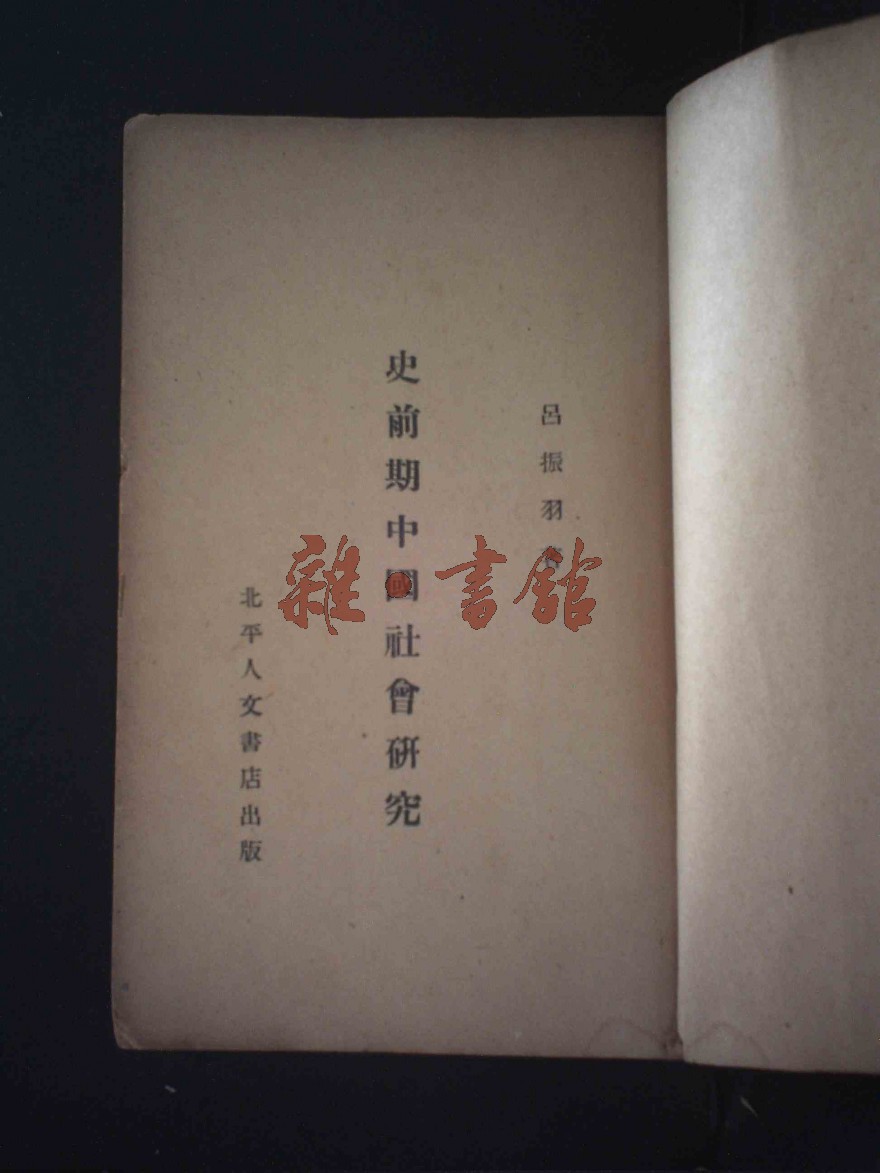 呂振羽著
史前期中國社會研究
北平人文書店出版
雜書館